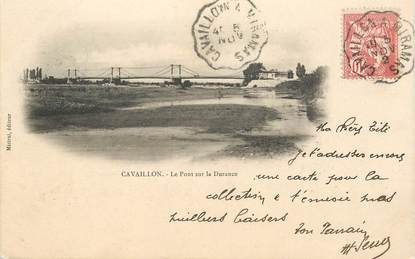 CAVAILLON A MIRAMAS
CAVAILLON A MIRAMAS
CAVAILLON. - Le Pont sur la Durance
Mistral, éditeur
Ma
je t'adresse encore
une carte pour la
collection & t'envoie mes
meilleurs baisers
Ton Parrain